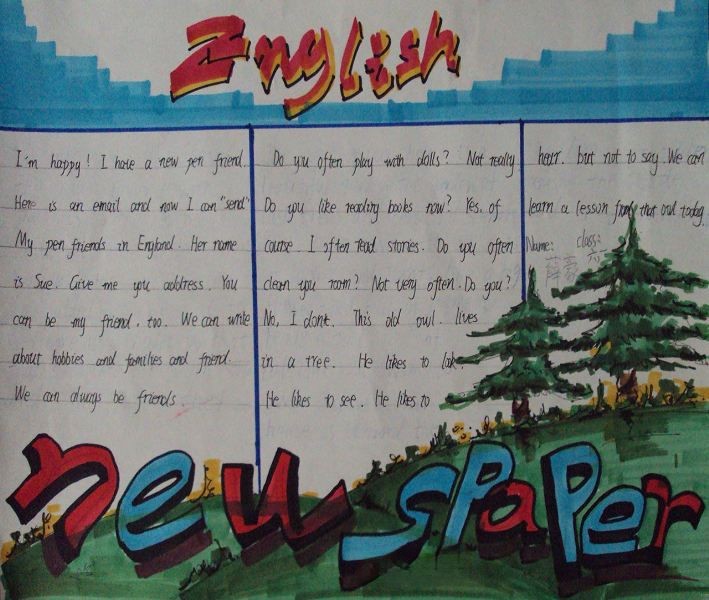 English
I'm happy! I have a new pen friend.
Here is an email and now I can "send"
My pen friends in England. Her name
is Sue. Give me you address. You
can be my friend, too. We can write
about hobbies and families and friend.
We can always be friends.
Do you often play with dolls? Not really.
Do you like reading books now? Yes, of
course. I often read stories. Do you often
clean you room? Not very often. Do you?
No, I dont. This old owl. lives
in a tree. He likes to look.
He likes to see. He likes to
hear. but not to say. We can
learn a lesson from that owl today.
Name: class:
newspaper